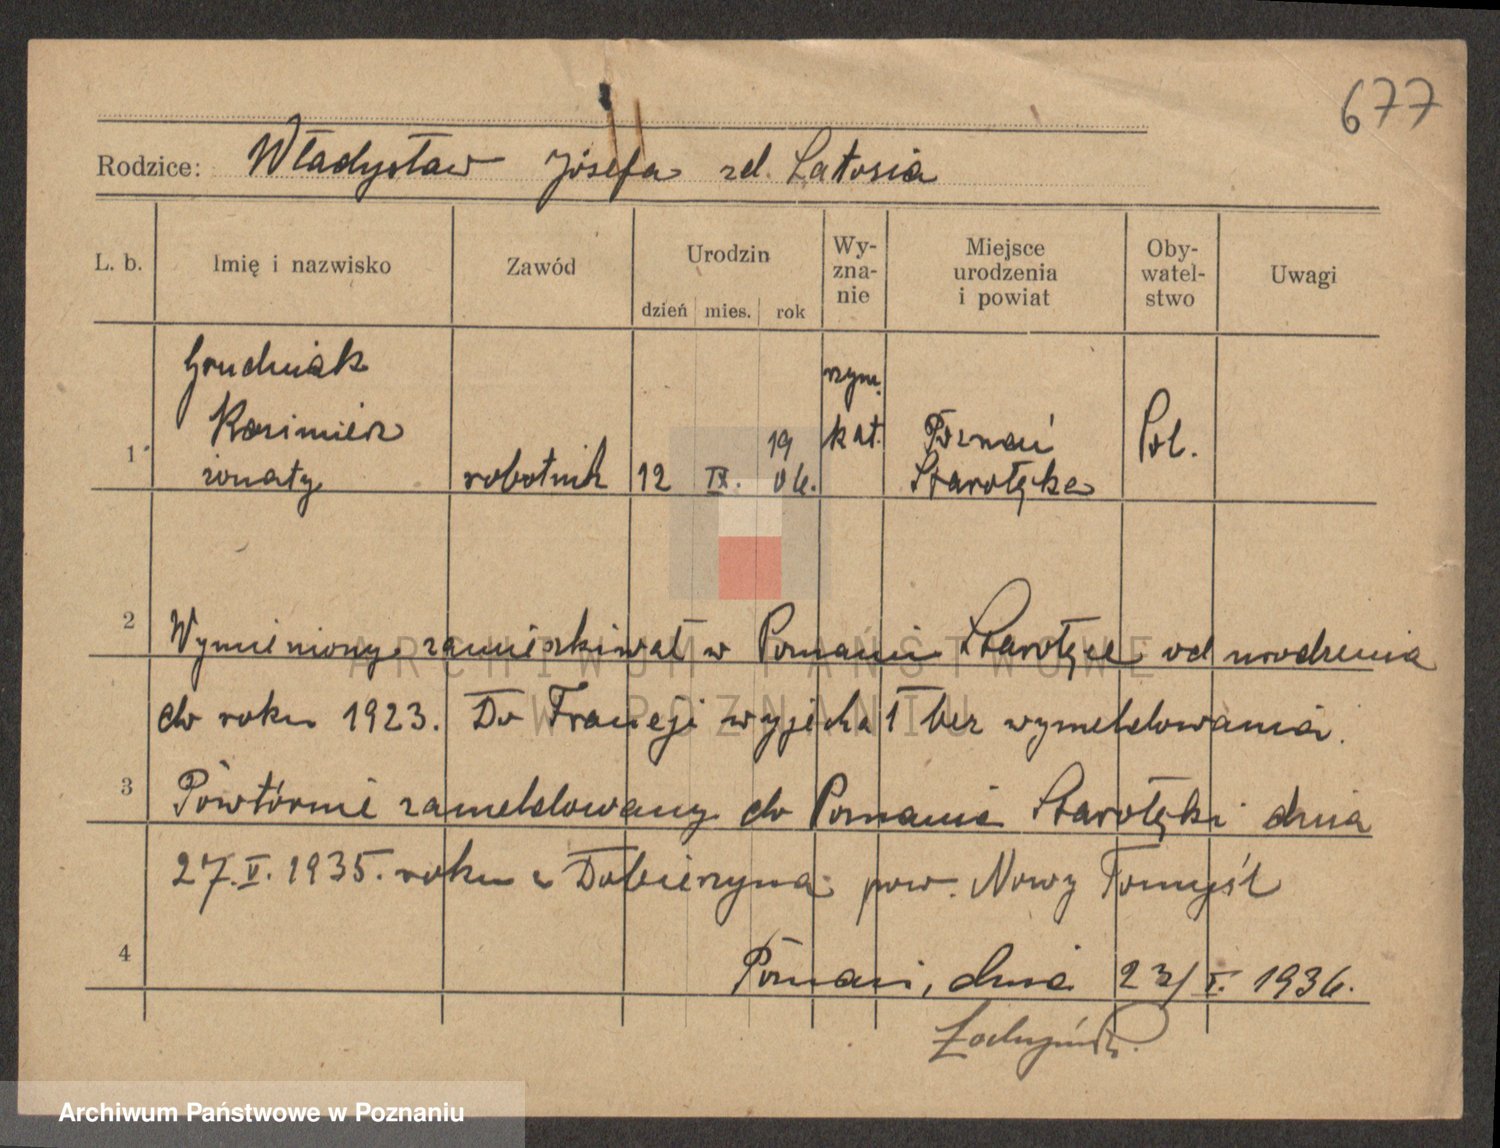 677
Rodzice: Władysław Józefa zd. Latosia
L. b. Imię i nazwisko Zawód Urodzin dzień mies. rok Wy-zna-nie Miejsce urodzenia i powiat Oby-watel-stwo Uwagi
Grudniak
Kazimierz
żonaty
1 robotnik 12 IX. 19 06. rzym. kat. Poznań Starołęka Pol.
2 Wymieniony zamieszkiwał w Poznaniu Starołęce od urodzenia
do roku 1923. Do Francji wyjechał bez wymeldowania.
3 Powtórnie zameldowany do Poznania Starołęki dnia
27.V.1935. roku z Dobieżyna pow. Nowy Tomyśl
4 Poznań, dnia 23/I. 1936.
ARCHIWUM PAŃSTWOWE
W POZNANIU
Archiwum Państwowe w Poznaniu